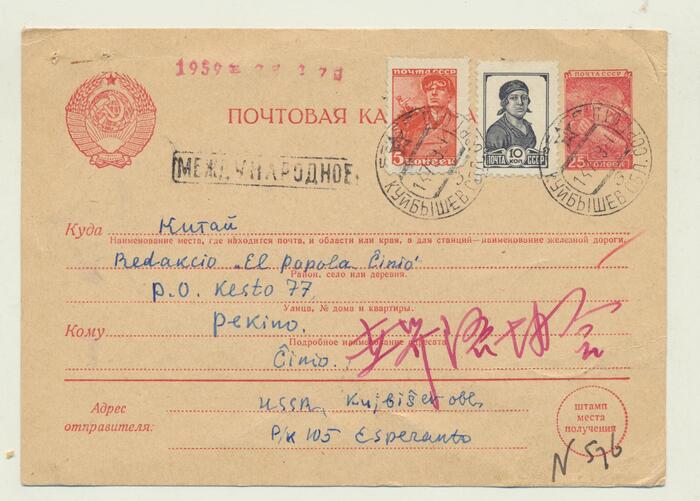 1959
ПОЧТА СССР
5 КОПЕЕК
ПОЧТА 10 КОП СССР
ПОЧТА СССР
25 КОПЕЕК
ПОЧТОВАЯ КА
МЕЖДУНАРОДНОЕ
КУЙБЫШЕВ
КУЙБЫШЕВ
Куда Китай
Наименование места, где находится почта, и области или края, а для станций—наименование железной дороги.
Redakcio „El Popola Ĉinio"
Район, село или деревня.
P.O. Kesto 77,
Улица, № дома и квартиры.
Pekino.
Кому
Подробное наименование адресата
Ĉinio.
Адрес отправителя:
USSR, Kujbiŝev obl,
P/K 105 Esperanto
штамп
места
получения
N 576